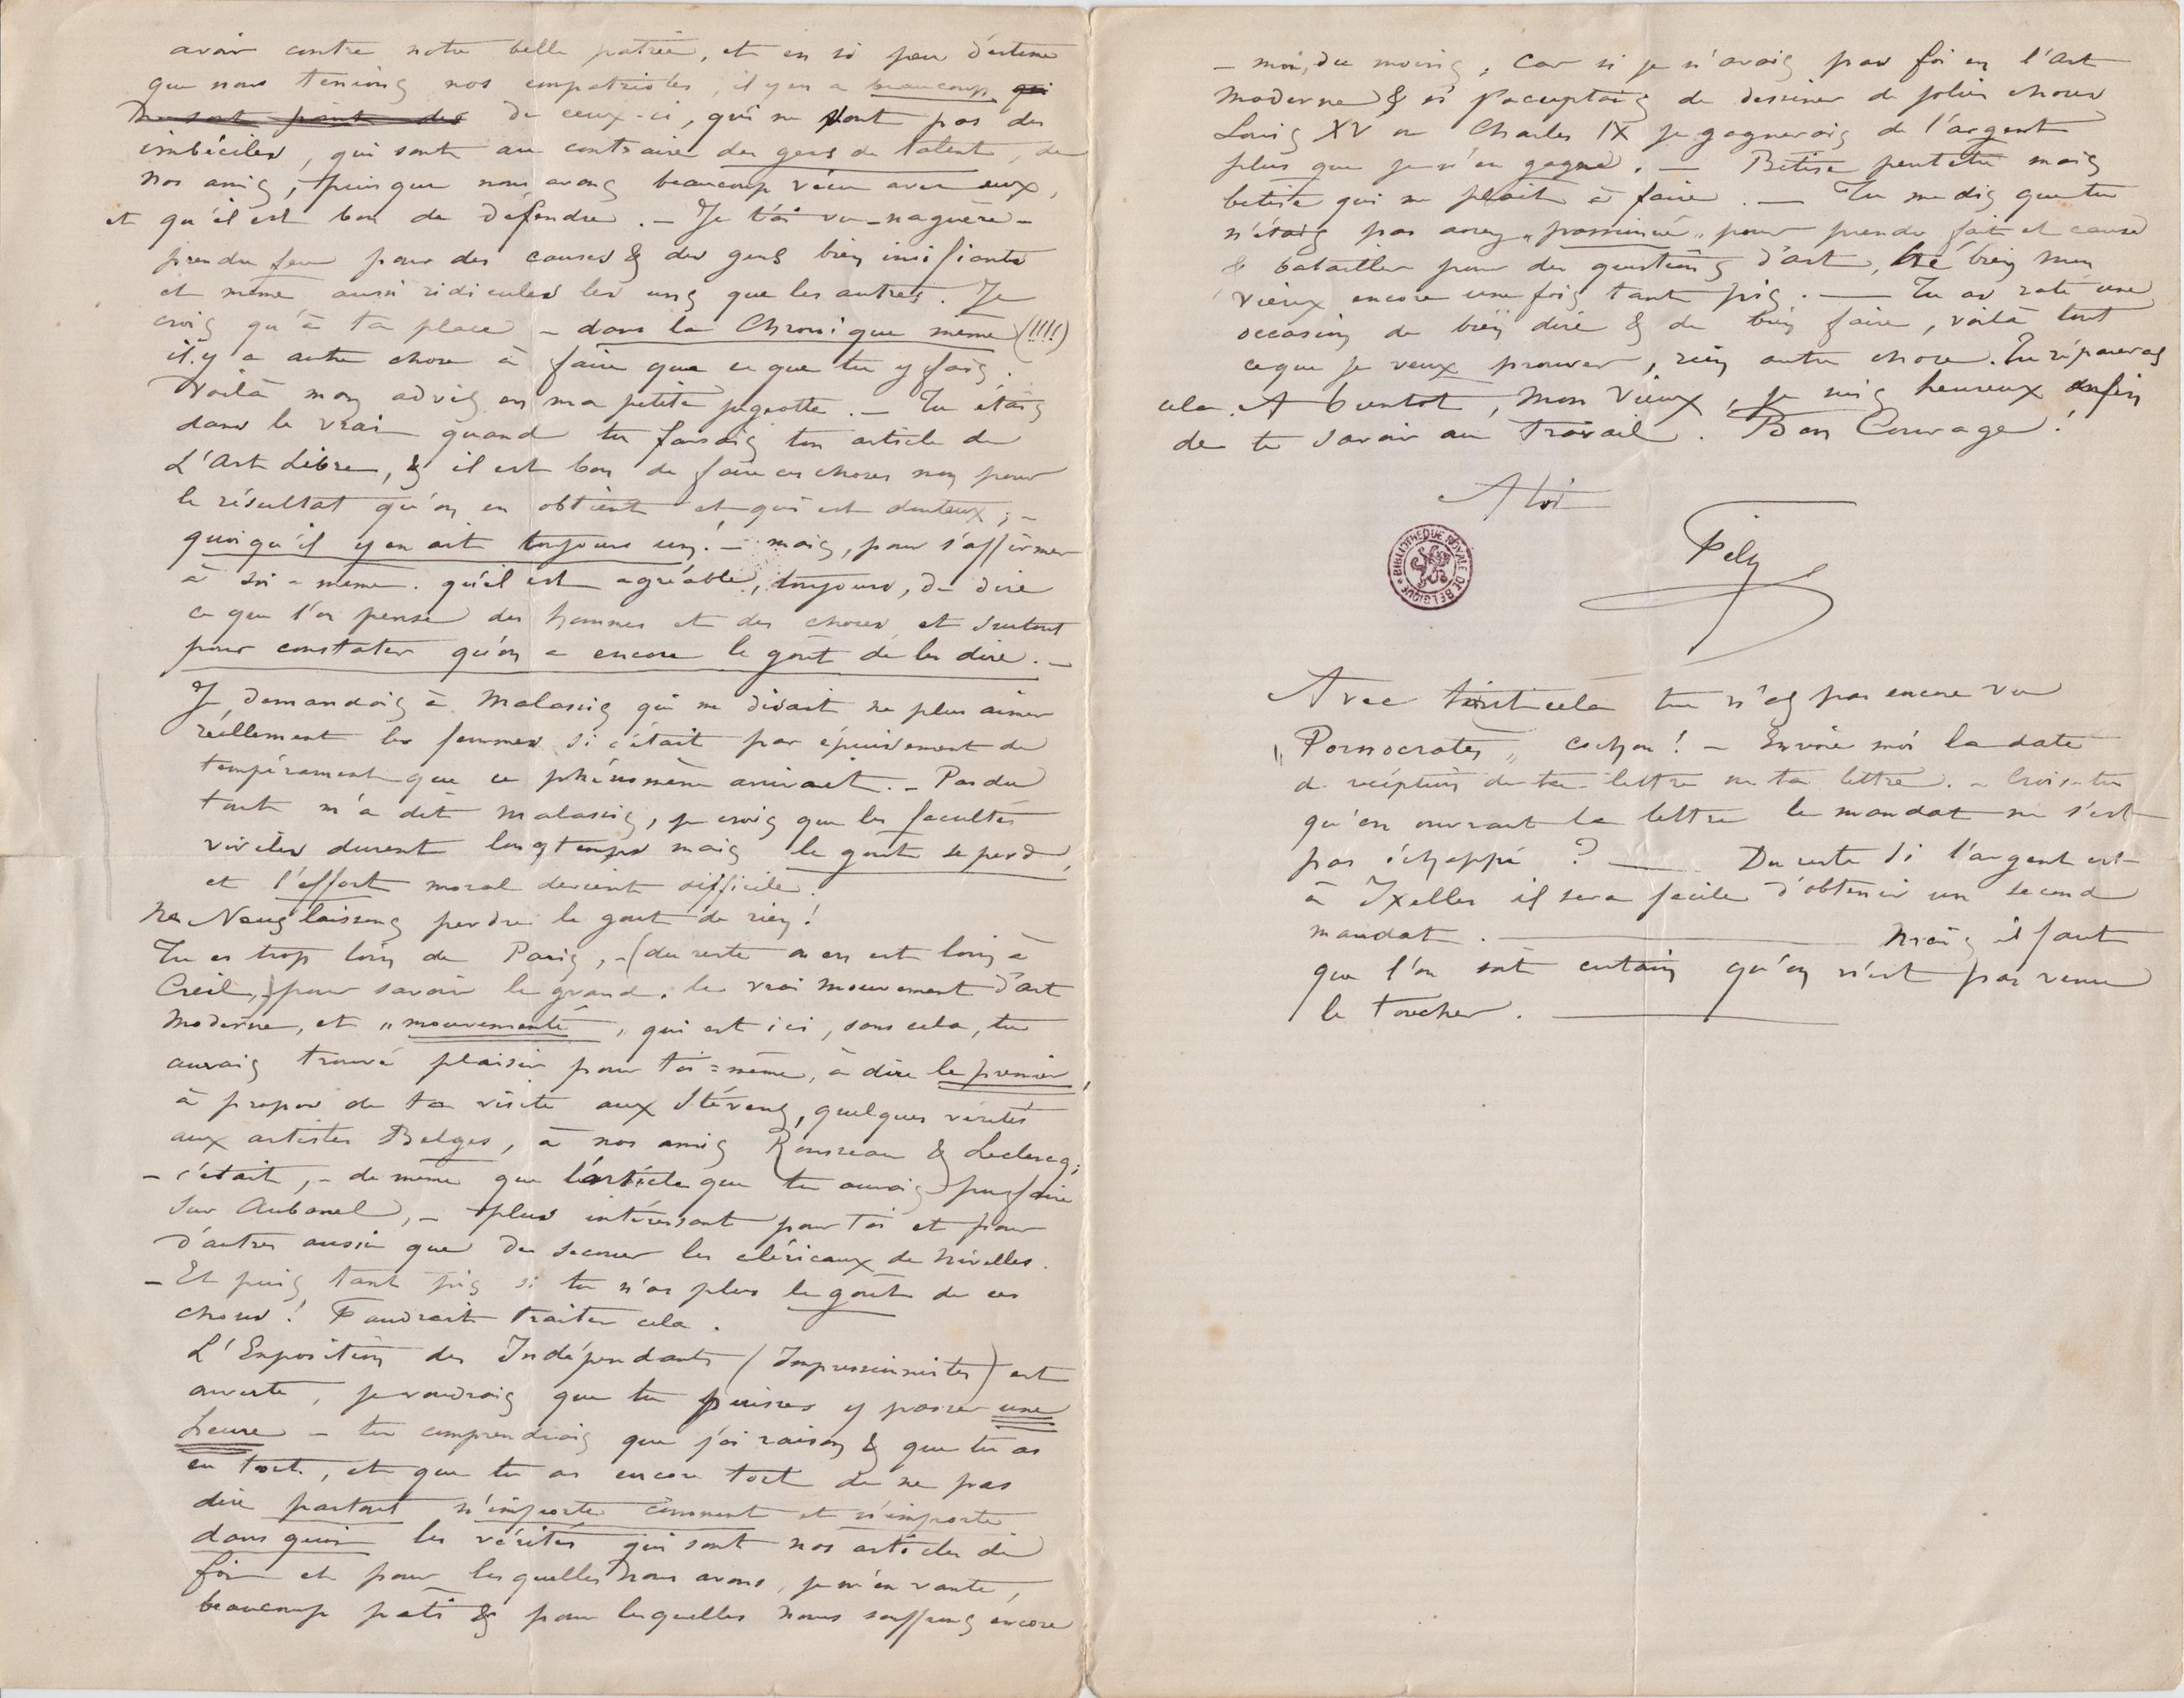 avoir contre notre belle patrie, et en si peu d'estime
que nous tenions nos compatriotes, il y en a beaucoup qui
ne sont point des de ceux-ci, qui ne sont pas des
imbéciles, qui sont au contraire des gens de talent, de
nos amis, puisque nous avons beaucoup vécu avec eux,
et qu'il est bon de défendre. – Je t'ai vu – naguère –
prendre feu pour des causes & des gens bien
et même aussi ridicules les uns que les autres. Je
crois qu'à ta place – dans la Chronique même (!!!!)
il y a autre chose à faire que ce que tu y fais.
Voilà mon advis en ma petite jugeotte. – Tu étais
dans le vrai quand tu faisais ton article de
L'Art Libre, & il est bon de faire ces choses non pour
le résultat qu'on en obtient et qui est douteux, –
quoiqu'il y en ait toujours un. – mais, pour s'affirmer
à soi-même. qu'il est agréable, toujours, de dire
ce que l'on pense des hommes et des choses et surtout
pour constater qu'on a encore le goût de les dire. –
Je demandais à Malassis qui me disait ne plus aimer
réellement les femmes si c'était par épuisement de
tempérament que ce phénomène arrivait. – Pas du
tout m'a dit Malassis, je crois que les facultés
viriles durent longtemps mais le goût se perd,
et l'effort moral devient difficile.
Ne Nous laissons perdre le gout de rien!
Tu es trop loin de Paris, – (du reste on en est loin à
Creil,) pour savoir le grand, le vrai mouvement d'art
moderne, et „mouvementé", qui est ici, sans cela, tu
aurais trouvé plaisir pour toi=même, à dire le premier,
à propos de ta visite aux Stévens, quelques vérités
aux artistes Belges, à nos amis Rousseau & Leclercq;
– c'était, – de même que l'article que tu aurais pu faire
sur Aubanel, – plus intéressant pour toi et pour
d'autres aussi que de secouer les cléricaux de Nivelles.
– Et puis tant pis si tu n'as plus le goût de ces
choses! Faudrait traiter cela.
L'Exposition des Indépendants (Impressionnistes) est
ouverte, je voudrais que tu puisses y passer une
heure – tu comprendrais que j'ai raison & que tu as
eu tort, et que tu as encore tort de ne pas
dire partout n'importe comment et n'importe
dans quoi les vérités qui sont nos articles de
foi et pour lesquelles nous avons, je m'en vante,
beaucoup pati & pour lesquelles nous souffrons encore
– moi, du moins, Car si je n'avais pas foi en l'art
moderne & si j'acceptais de dessiner de jolies choses
Louis XV ou Charles IX je gagnerais de l'argent
plus que je n'en gagne. – Bêtise peutêtre mais
betise qui me plait à faire. — Tu me dis que tu
n'étais pas assez „ " pour prendre fait et cause
& batailler pour des questions d'art, hé bien mon
vieux encore une fois tant pis. — Tu as raté une
occasion de bien dire & de bien faire, voilà tout
ce que je veux prouver, rien autre chose. Tu répareras
cela. A bientot, mon Vieux, je suis heureux enfin
de te savoir au Travail. Bon Courage!
A toi
Fély
BIBLIOTHÈQUE ROYALE DE BELGIQUE
Avec tout cela tu n'as pas encore vu
„Pornocratès" cochon! – Envoie moi la date
de réception de ta lettre ou ta lettre. – Crois-tu
qu'en ouvrant la lettre le mandat ne s'est
pas échappé? — Du reste si l'argent est
à Ixelles il sera facile d'obtenir un second
mandat. — Mais il faut
que l'on soit certain qu'on n'est pas venu
le toucher. —